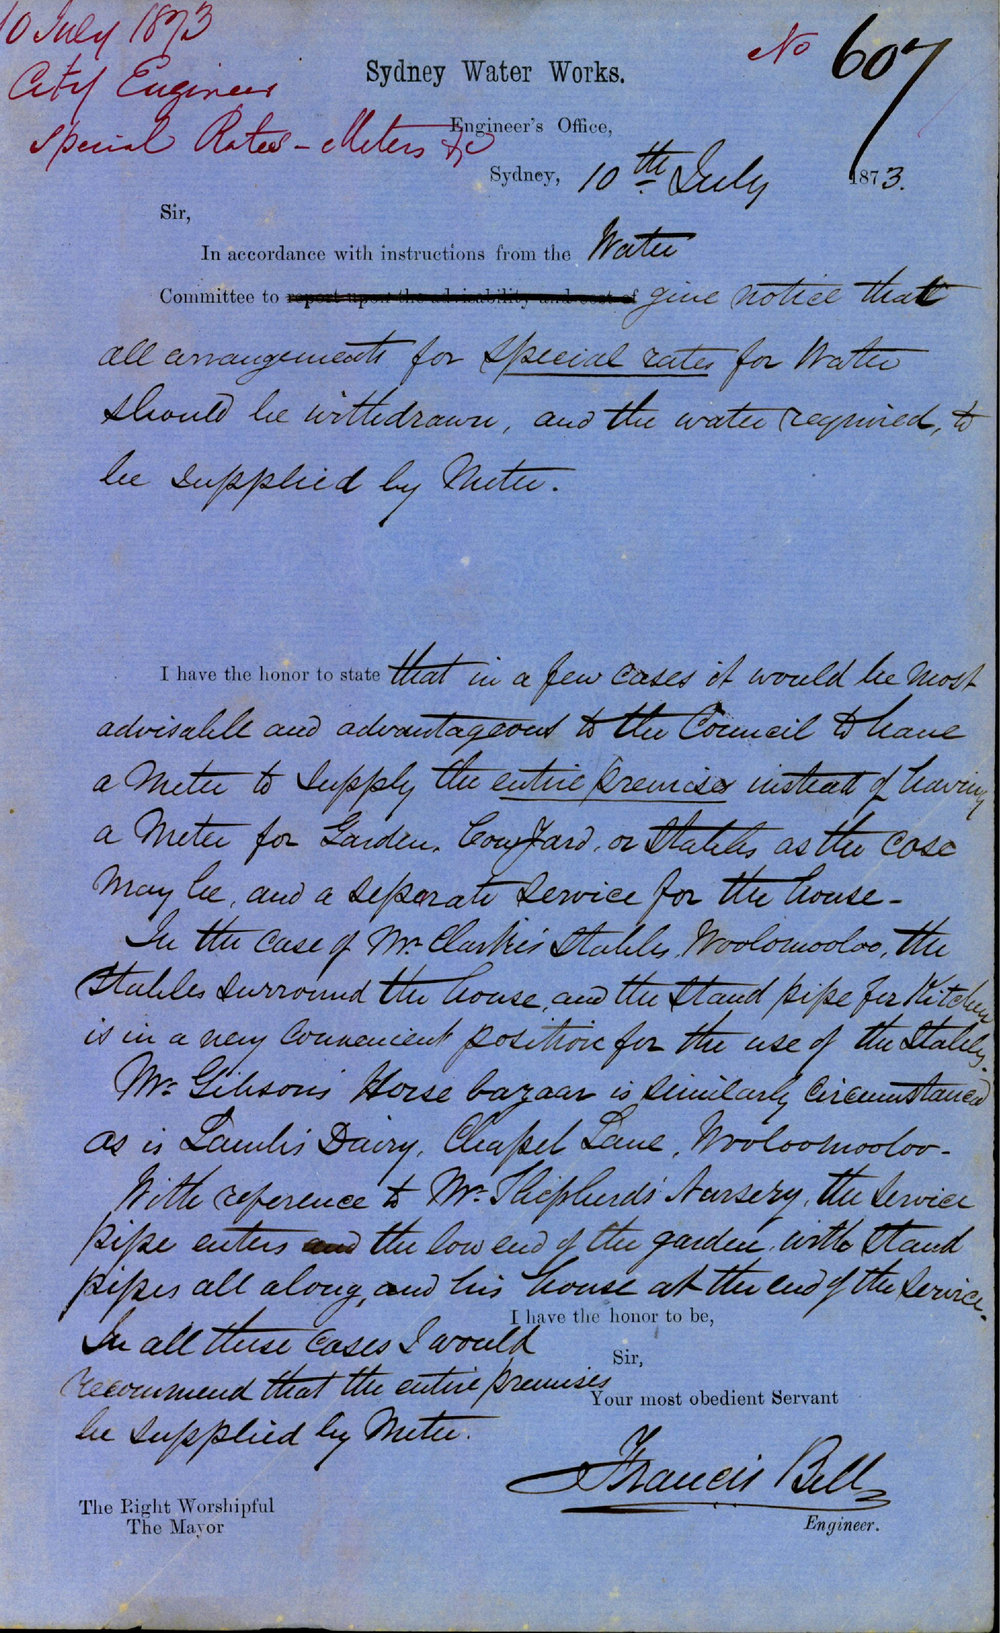 10 July 1873
City Engineer
Special Rates - Meters &c
No 607
Sydney Water Works.
Engineer's Office,
Sydney, 10th July 1873.
Sir,
In accordance with instructions from the Water
Committee to report upon the advisability and cost of give notice that
all arrangements for special rates for Water
should be withdrawn, and the water required, to
be supplied by Meter.
I have the honor to state that in a few cases it would be most
advisable and advantageous to the Council to have
a Meter to supply the entire premises instead of having
a Meter for Garden, Cow Yard, or Stables as the case
may be, and a separate service for the house -
In the case of Mr. Clarke's Stables, Woolomooloo, the
Stables surround the house, and the stand pipe for Kitchen
is in a very convenient position for the use of the Stables.
Mr. Gibson's Horse bazaar is similarly circumstanced
as is Lamb's Dairy, Chapel Lane, Wooloomooloo -
With reference to Mr. Shepherds' Nursery, the service
pipe enters and the low end of the garden, with stand
pipes all along, and his house at the end of the service.
In all these cases I would
recommend that the entire premises
be supplied by Meter.
I have the honor to be,
Sir,
Your most obedient Servant
Francis Bell
Engineer.
The Right Worshipful
The Mayor